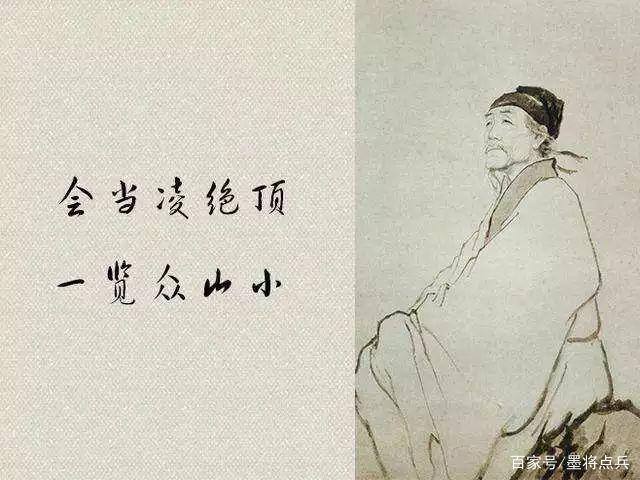 会当凌绝顶
一览众山小
百家号/墨将点兵